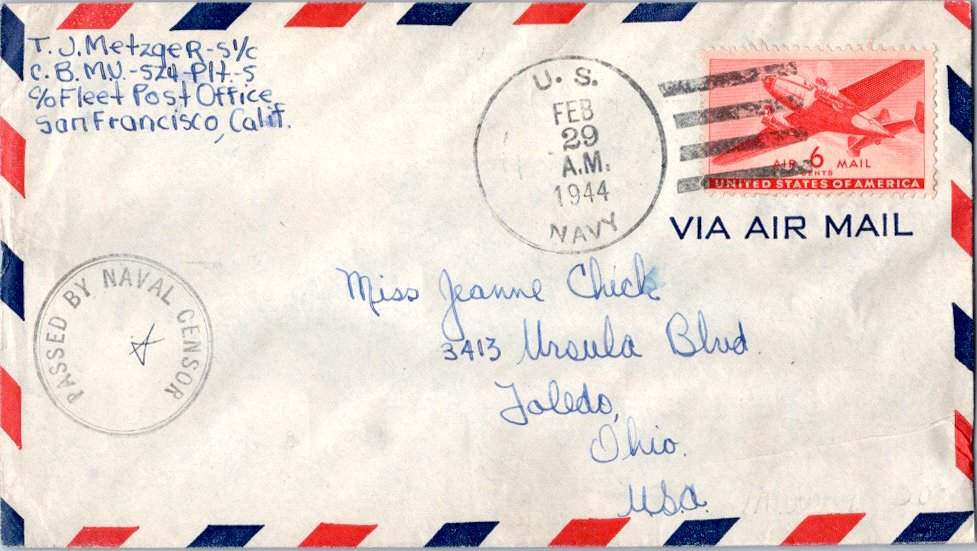 T. J. Metzger - S1/c
C. B. M.U. - 524 - Plt. - 5
c/o Fleet Post Office
San Francisco, Calif.
U. S.
FEB
29
A.M.
1944
NAVY
AIR 6 MAIL
CENTS
UNITED STATES OF AMERICA
VIA AIR MAIL
PASSED BY NAVAL CENSOR
Miss Jeanne Chick
3413 Ursula Blvd.
Toledo,
Ohio.
U.S.A.